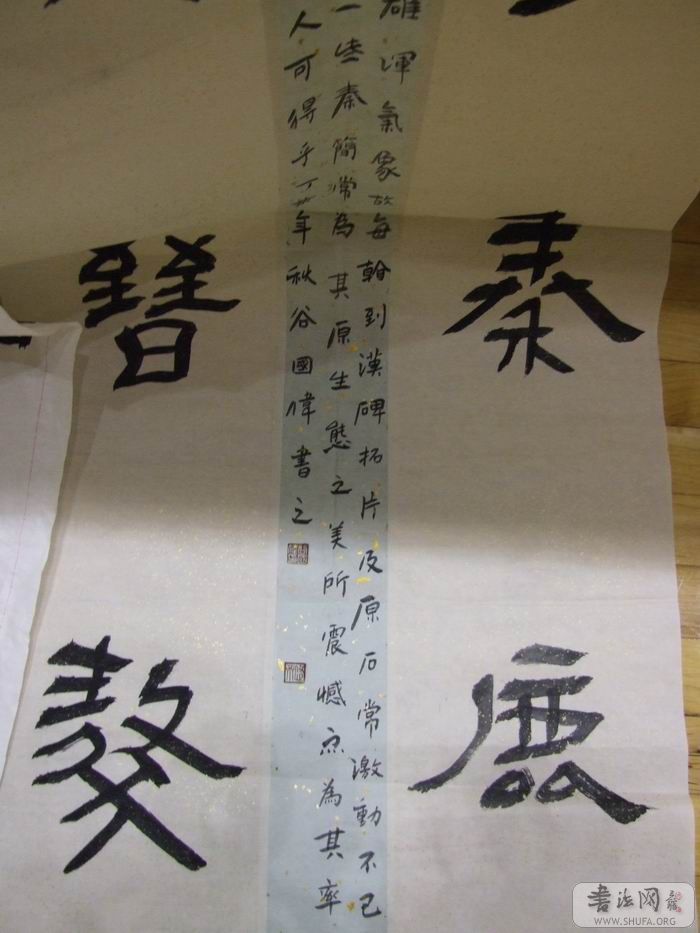 秦鹿
雄渾氣象故每到漢碑拓片及原石常激動不已
一些秦簡常為其原生態之美所震憾亦為其率
人可得乎年秋谷國偉書之
晉獒
書法网
WWW.SHUFA.ORG